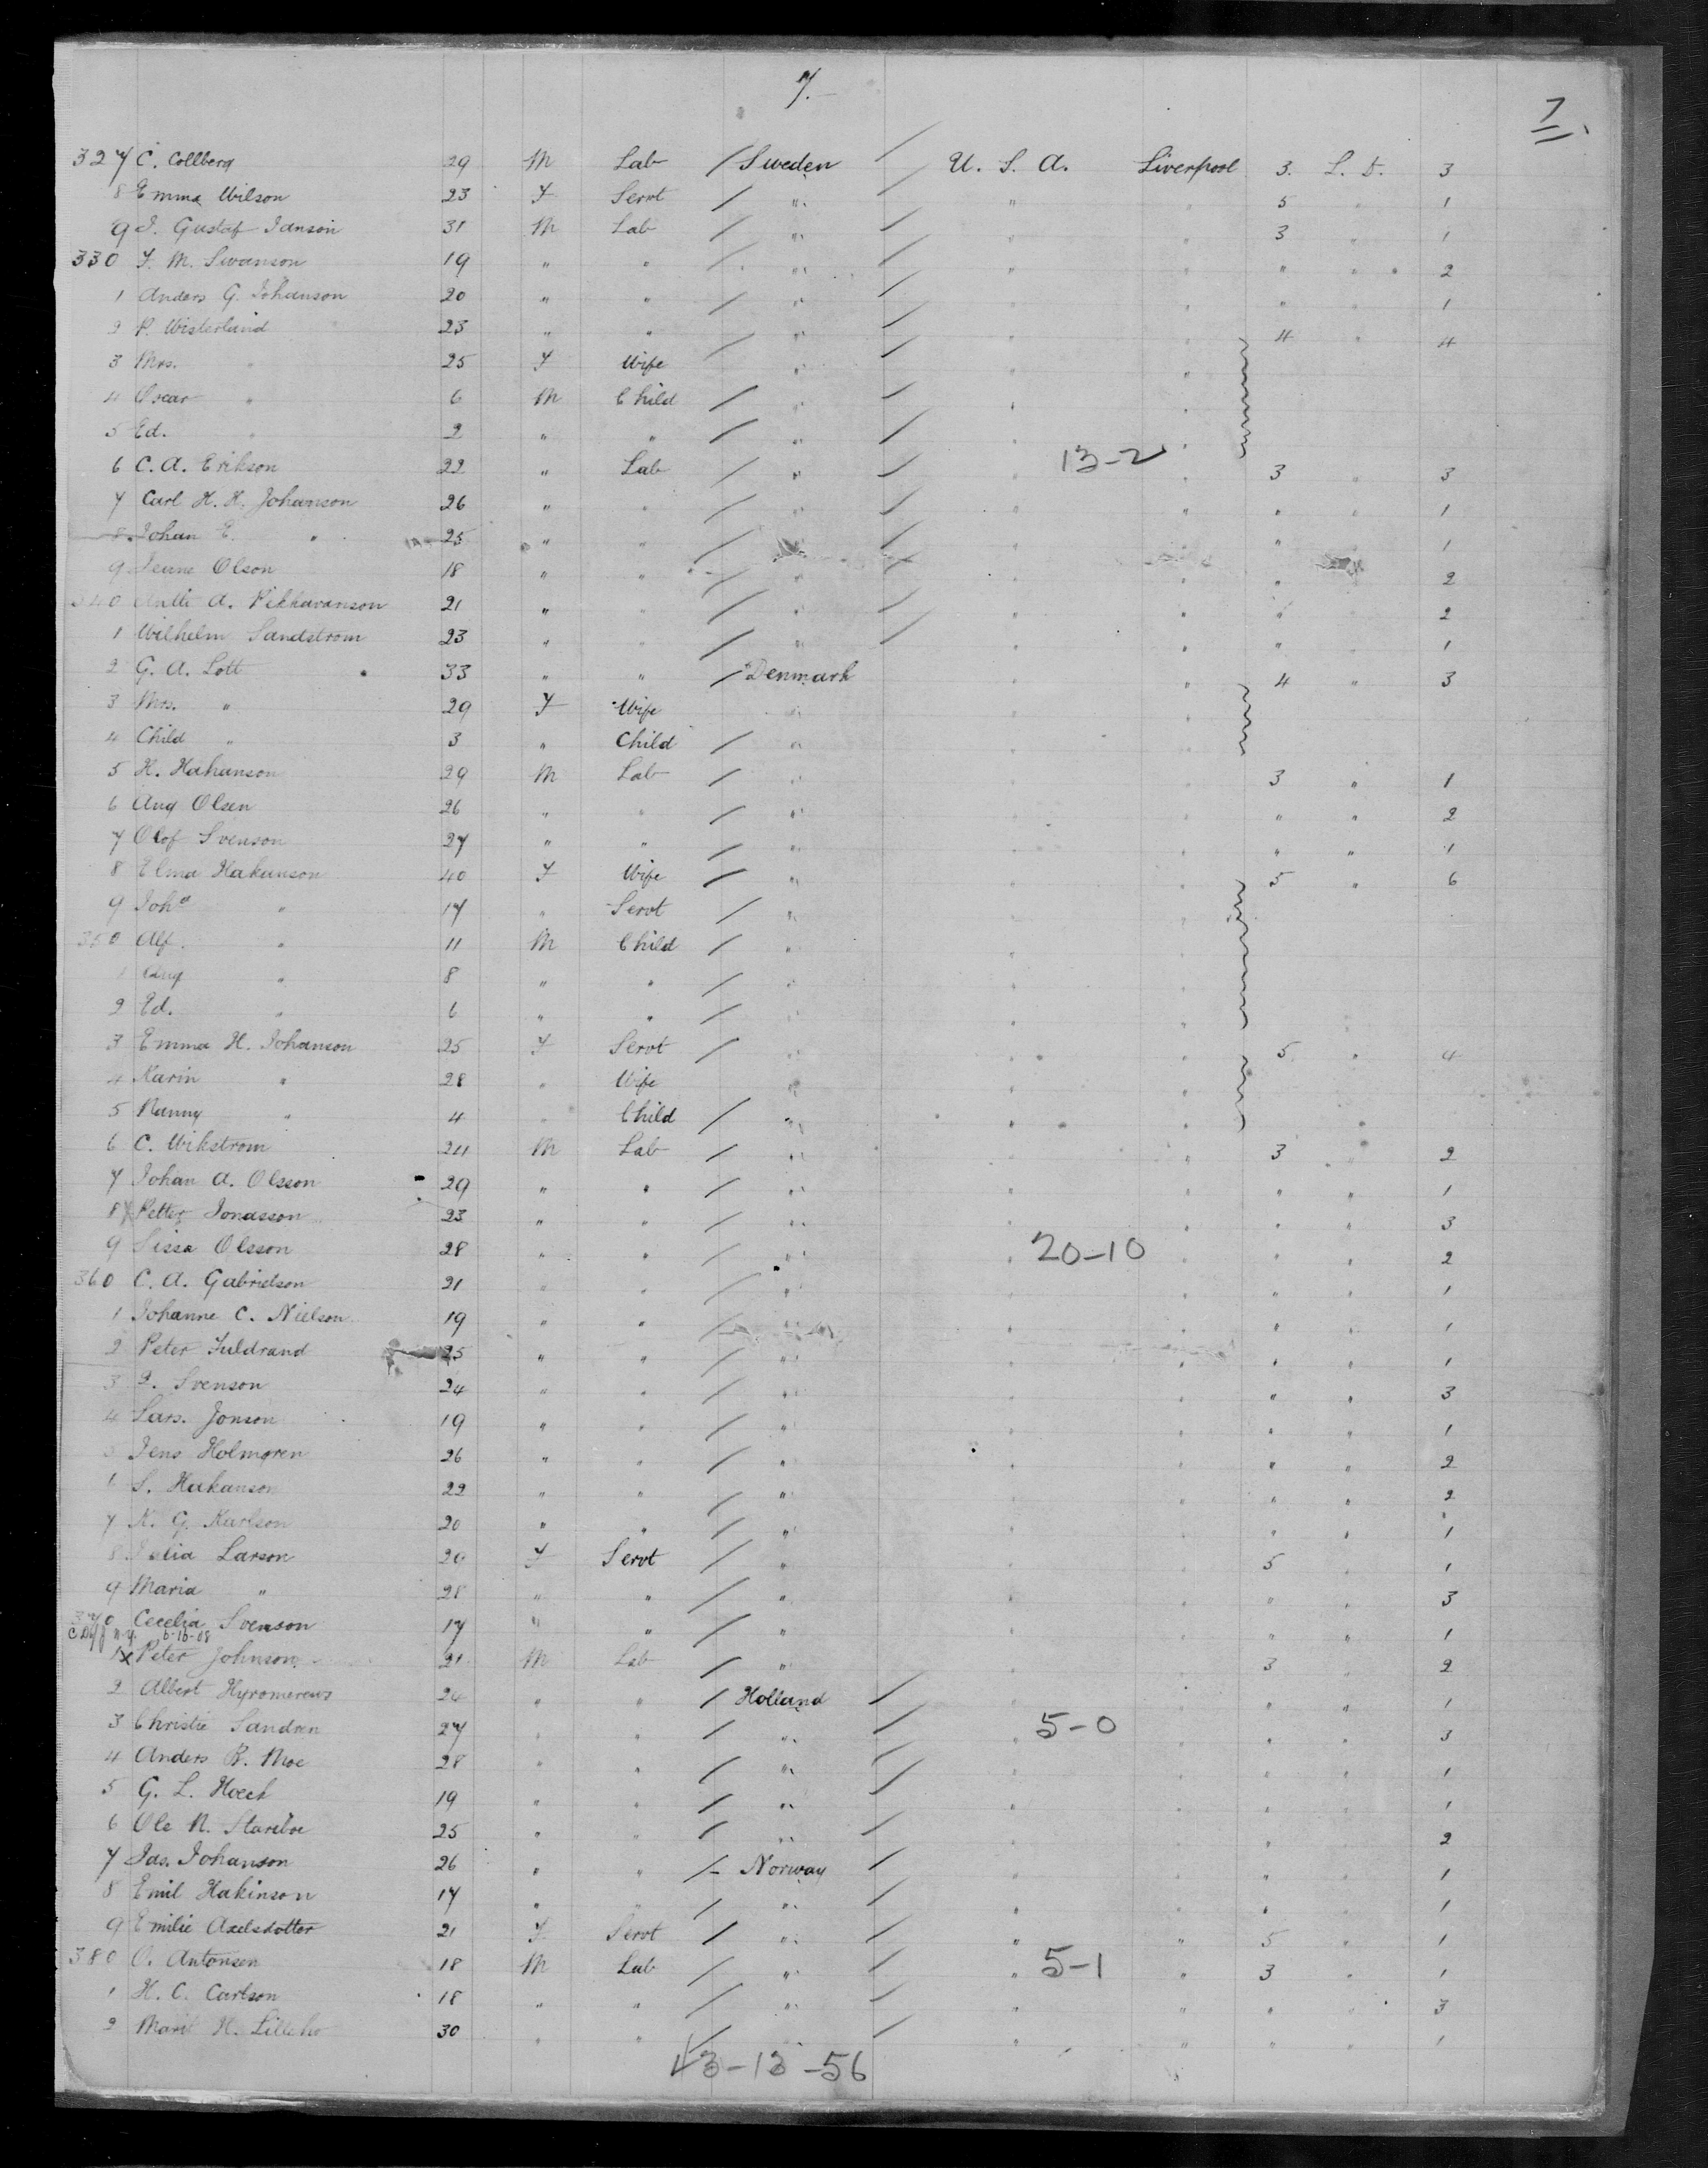 7.
7
327 C. Collberg 29 M Lab / Sweden / U. S. A. Liverpool 3. L. D. 3
8 Emma Wilson 23 F Servt / " / " " 5 " 1
9 J. Gustaf Janson 31 M Lab / " / " " 3 " 1
330 F. M. Swanson 19 " " / " / " " " " 2
1 Anders G. Johanson 20 " " / " / " " " " 1
2 P. Wisterlund 23 " " / " / " " 4 " 4
3 Mrs. " 25 F Wife " / " "
4 Oscar " 6 M Child / " / " "
5 Ed. " 2 " " / " / " "
6 C. A. Erikson 22 " Lab / " / " 13-2 " 3 " 3
7 Carl H. H. Johanson 26 " " / " / " " " " 1
8 Johan E. " 25 " " / " / " " " 1
9 Jeane Olson 18 " " / " / " " " " 2
340 Antti A. Pikkaranson 21 " " / " / " " " " 2
1 Wilhelm Sandstrom 23 " " / " / " " " " 1
2 G. A. Lott 33 " " / Denmark " " 4 " 3
3 Mrs. " 29 F Wife " " "
4 Child " 3 " Child / " " "
5 H. Hahanson 29 M Lab / " " " 3 " 1
6 Aug Olsen 26 " " / " " " " " 2
7 Olof Svenson 27 " " / " " " " " 1
8 Elma Hakanson 40 F Wife / " " " 5 " 6
9 Joha " 17 " Servt / " " "
350 Alf. " 11 M Child / " " "
1 Aug " 8 " " / " " "
2 Ed. " 6 " " / " " "
3 Emma H. Johanson 25 F Servt / " " " 5 " 4
4 Karin " 28 " Wife " " "
5 Nanny " 4 " Child / " " "
6 C. Wikstrom 24 M Lab / " " " 3 " 2
7 Johan A. Olsson 29 " " / " " " " " 1
8 X Petter Jonasson 23 " " / " " " " " 3
9 Sissa Olsson 28 " " / " " 20-10 " " " 2
360 C. A. Gabrielson 21 " " / " " " " " 1
1 Johanne C. Nielson 19 " " / " " " " " 1
2 Peter Fuldrand 25 " " / " " " " " 1
3 P. Svenson 24 " " / " " " " " 3
4 Lars. Jonson 19 " " / " " " " " 1
5 Jens Holmgren 26 " " / " " " " " 2
6 S. Hakanson 22 " " / " " " " " 2
7 K. G. Karlson 20 " " / " " " " " 1
8 Julia Larson 20 F Servt / " " " 5 " 1
9 Maria " 28 " " / " " " " " 3
370 Cecelia Svenson 17 " " / " " " " " 1
6-16-08
1 X Peter Johnson 21 M Lab / " " " 3 " 2
2 Albert 24 " " / Holland / " " " " 1
3 Christie Sandren 27 " " / " / " 5-0 " " " 3
4 Anders B. Moe 28 " " / " / " " " " 1
5 G. L. Hoech 19 " " / " / " " " " 1
6 Ole N. 25 " " / " / " " " " 2
7 Jas. Johanson 26 " " / Norway / " " " " 1
8 Emil Hakinson 17 " " / " / " " " " 1
9 Emilie Axelsdotter 21 F Servt / " / " " 5 " 1
380 O. Antonsen 18 M Lab / " / " 5-1 " 3 " 1
1 H. C. Carlson 18 " " / " / " " " " 3
2 Marit H. Lilleho 30 " " / " / " " " " 1
43-13-56